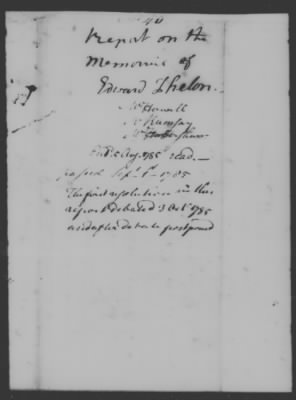 Report on the
Memorial of
Edward Phelon
Mr Howell
Mr Ramsay
Mr
Entd 5 Aug. 1785 read.
passed Sept. 1st 1785
The first resolution in this
report debated 3 Octr 1785
and after debate postponed